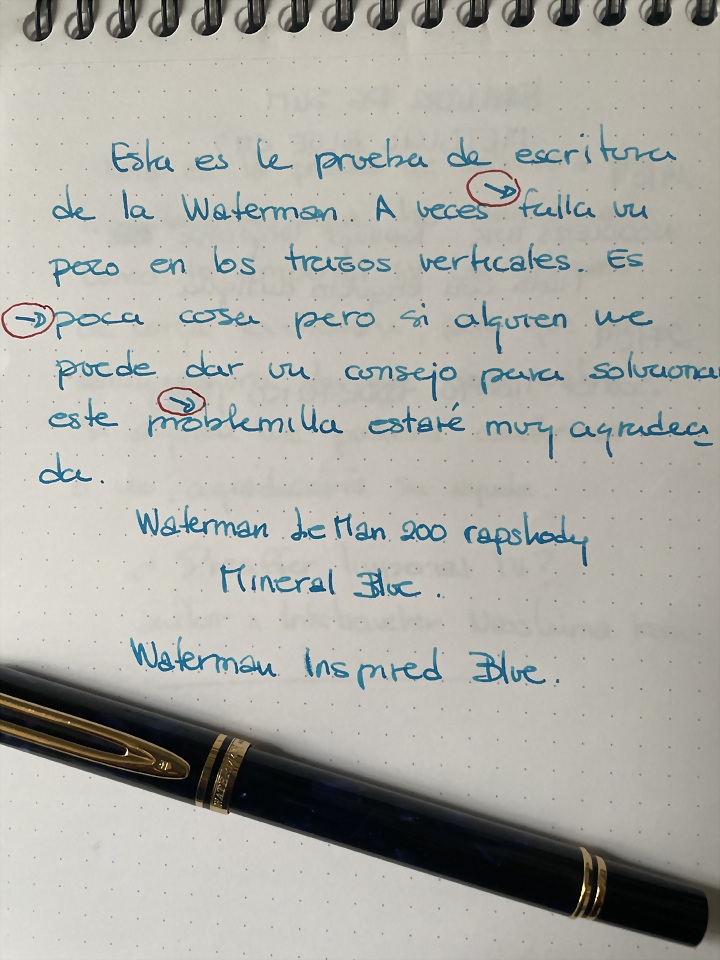 Esta es le prueba de escritura
de la Waterman. A veces falla un
poco en los trazos verticales. Es
poca cosa pero si alguien me
puede dar un consejo para soluciona
este problemilla estaré muy agradeci
da.
Waterman de Man 200 rapshody
Mineral Blue.
Waterman Inspired Blue.
WATERMAN